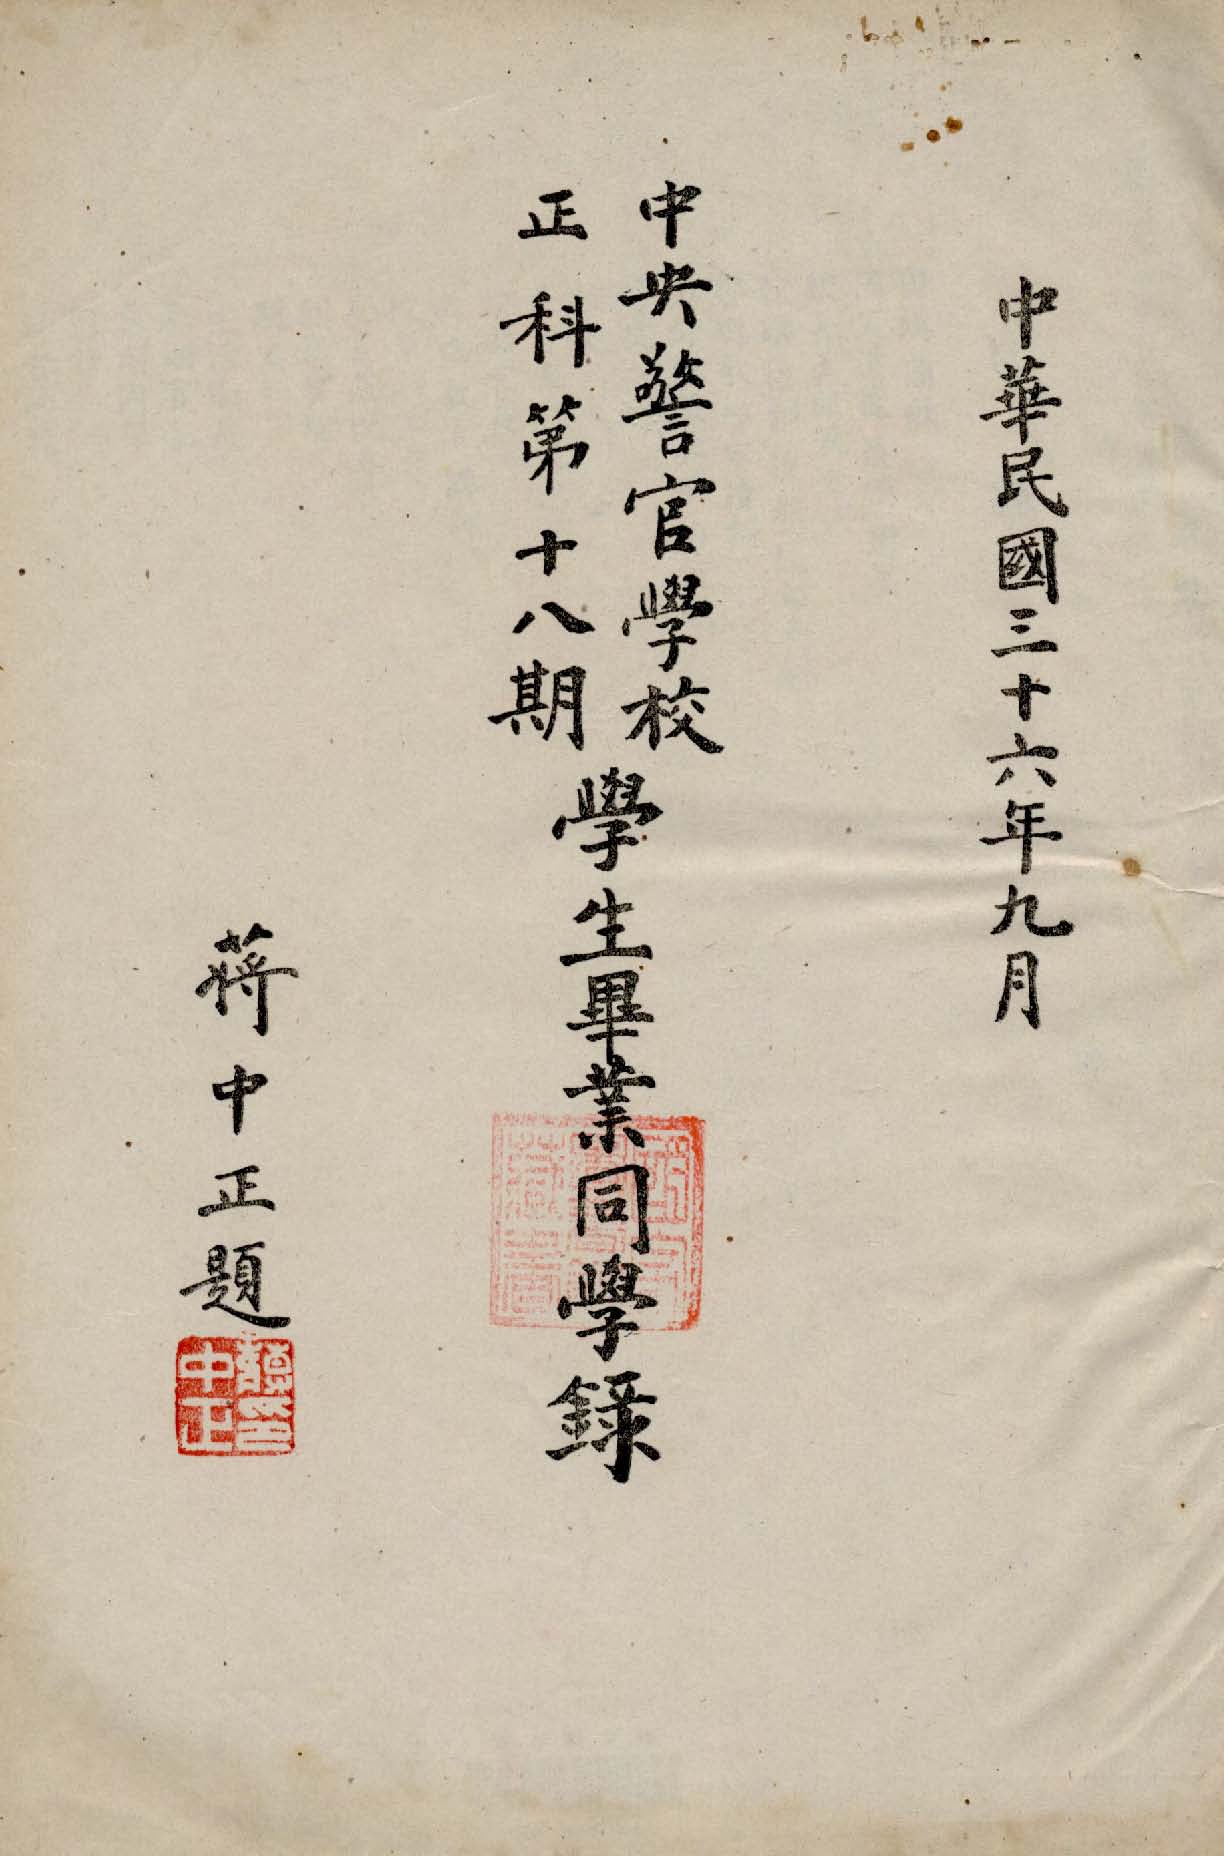 中華民國三十六年九月
中央警官學校
正科第十八期
學生畢業同學錄
蔣中正題
中正